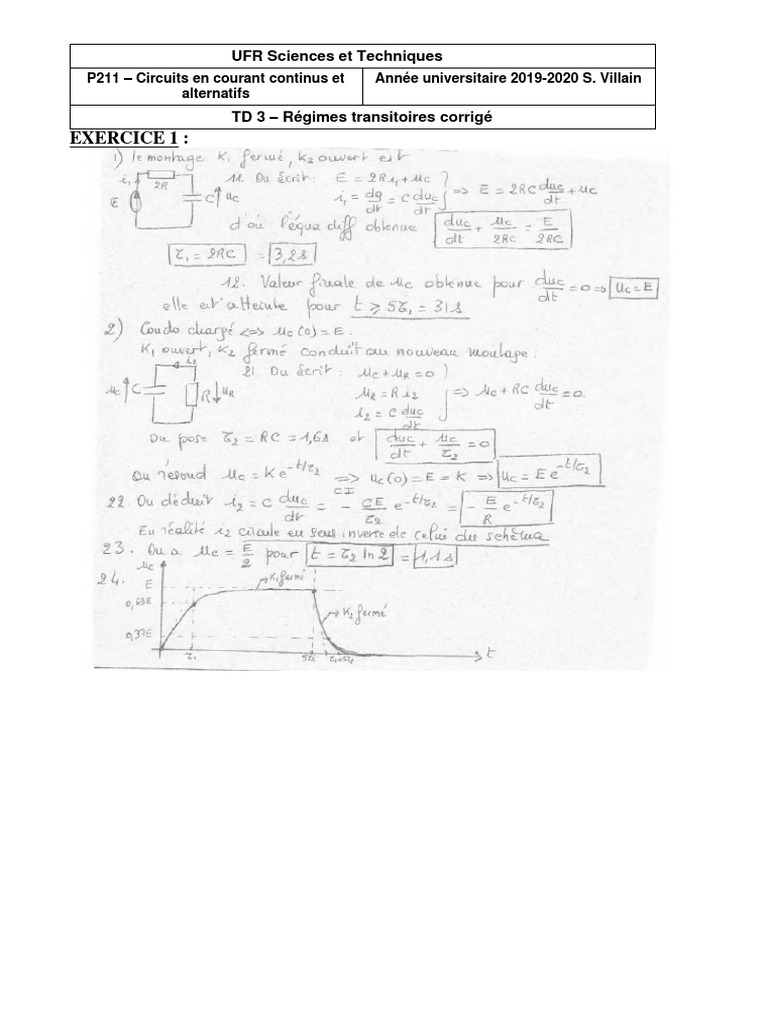 UFR Sciences et Techniques
P211 – Circuits en courant continus et alternatifs
Année universitaire 2019-2020 S. Villain
TD 3 – Régimes transitoires corrigé
EXERCICE 1 :
1) le montage K₁ fermé, K₂ ouvert est
i₁ 2R E C uc
11. On écrit : E = 2Ri₁ + uc
i₁ = dq/dt = C duc/dt ⇒ E = 2RC duc/dt + uc
d'où l'équa diff obtenue duc/dt + uc/2RC = E/2RC
τ₁ = 2RC = 3,2s
12. Valeur finale de uc obtenue pour duc/dt = 0 ⇒ uc = E
elle est atteinte pour t ⩾ 5τ₁ = 31s
2) Condo chargé <=> uc(0) = E.
K₁ ouvert, K₂ fermé conduit au nouveau montage :
i₂ uc C R uR
21. On écrit : uc + uR = 0
uR = R i₂ ⇒ uc + RC duc/dt = 0.
i₂ = C duc/dt
On pose τ₂ = RC = 1,6s et duc/dt + uc/τ₂ = 0
On résoud uc = K e^-t/τ₂ ⇒ CI uc(0) = E = K ⇒ uc = E e^-t/τ₂
22. On déduit i₂ = C duc/dt = - CE/τ₂ e^-t/τ₂ = - E/R e^-t/τ₂
En réalité i₂ circule en sens inverse de celui du schéma
23. On a uc = E/2 pour t = τ₂ ln 2 = 1,1s
24. uc
E K₁ fermé
0,63E
K₂ fermé
0,37E
τ₁ 5τ₁ t